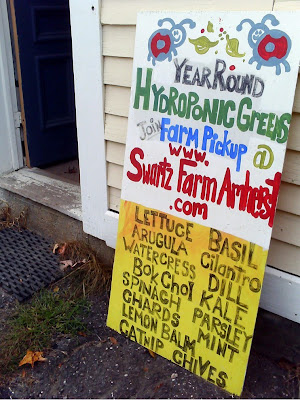 Year Round
Hydroponic Greens
Join Farm Pickup @
www.
Swartz Farm Amherst
.com
Lettuce Basil
Arugula Cilantro
Watercress Dill
Bok Choi Kale
Spinach Parsley
Chards Mint
Lemon Balm
Catnip Chives